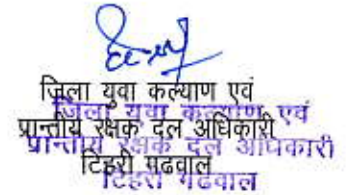 जिला युवा कल्याण एवं
जिला युवा कल्याण एवं
प्रान्तीय रक्षक दल अधिकारी
प्रान्तीय रक्षक दल अधिकारी
टिहरी गढवाल
टिहरी गढवाल